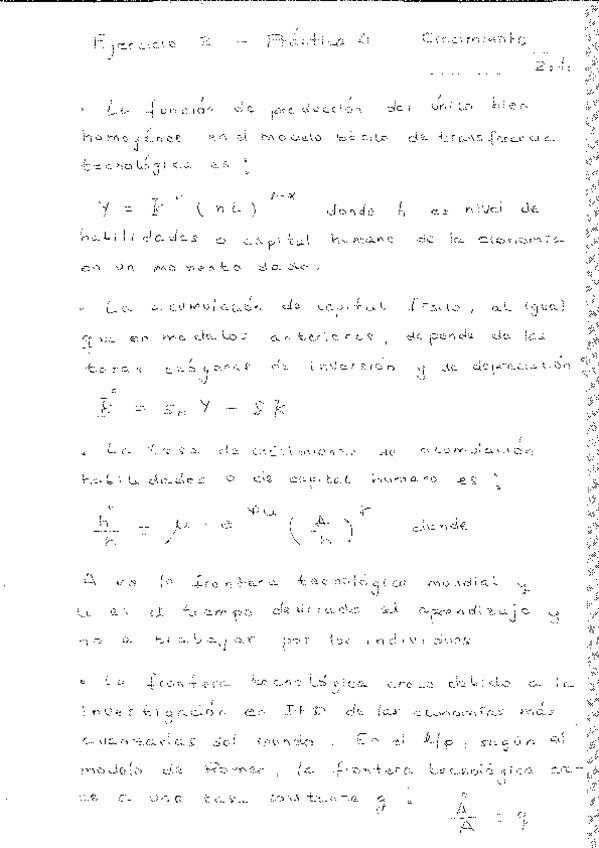 Ejercicio 2 - Práctica 4 Crecimiento
· La función de producción del único bien
homogéneo en el modelo básico de transferencia
tecnológica es :
Y = K^α (hL)^1-α donde h es nivel de
habilidades o capital humano de la economía
en un momento dado.
· La acumulación de capital físico, al igual
que en modelos anteriores, depende de las
tasas exógenas de inversión y de depreciación
K̇ = s_k Y - δK
· La tasa de crecimiento de acumulación
habilidades o de capital humano es :
ḣ/h = μ · e^ψu (A/h)^γ donde
A es la frontera tecnológica mundial y
u es el tiempo dedicado al aprendizaje y
no a trabajar por los individuos
· La frontera tecnológica crece debido a la
investigación en I+D de las economías más
avanzadas del mundo. En el l/p, según el
modelo de Romer, la frontera tecnológica cre-
ce a una tasa constante g : Ȧ/A = g